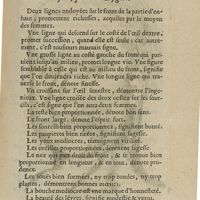 Deux lignes enfoyées sur le front de la partie d'en-
haut, promettent richesses, acquises par le moyen
des femmes.
Une ligne qui descend sur le costé de l'œil dextre,
promet succession, quand elle est seule: car autre-
ment, c'est tousiours mauvais signe.
Une grosse ligne au costé gauche du front qui par-
tient iusqu'au milieu, promet longue vie. Une figure
semblable à celle qui est au milieu du front, signifie
que l'on deviendra riche. Une longue ligne qui tra-
verse le front, dénote finesse.
Un croissant sur l'œil senestre, démontre l'inge-
nieux. Une ligne croisée des deux costez sur les sour-
cils, c'est signe d'un bon augure.
La teste bien proportionnée, dénote bon sens.
Le front large, dénote l'esprit fort.
Les sourcils bien proportionnez, signifient bonté.
Les paupieres bien tirées, signifient sagesse.
Les yeux modestes, témoignent sagesse.
Les oreilles proportionnées, dénotent sagesse.
Le nez qui part droit du front, & se trouve bien
proportionné en longueur, & en tout, dénote pru-
dence.
Les ioües bien formées, ny trop rondes, ny trop
plattes, démontrent bonnes mœurs.
La bouche modeste est une marque d'honnesteté.
La beauté des lévres, signifie modestie & vertu.